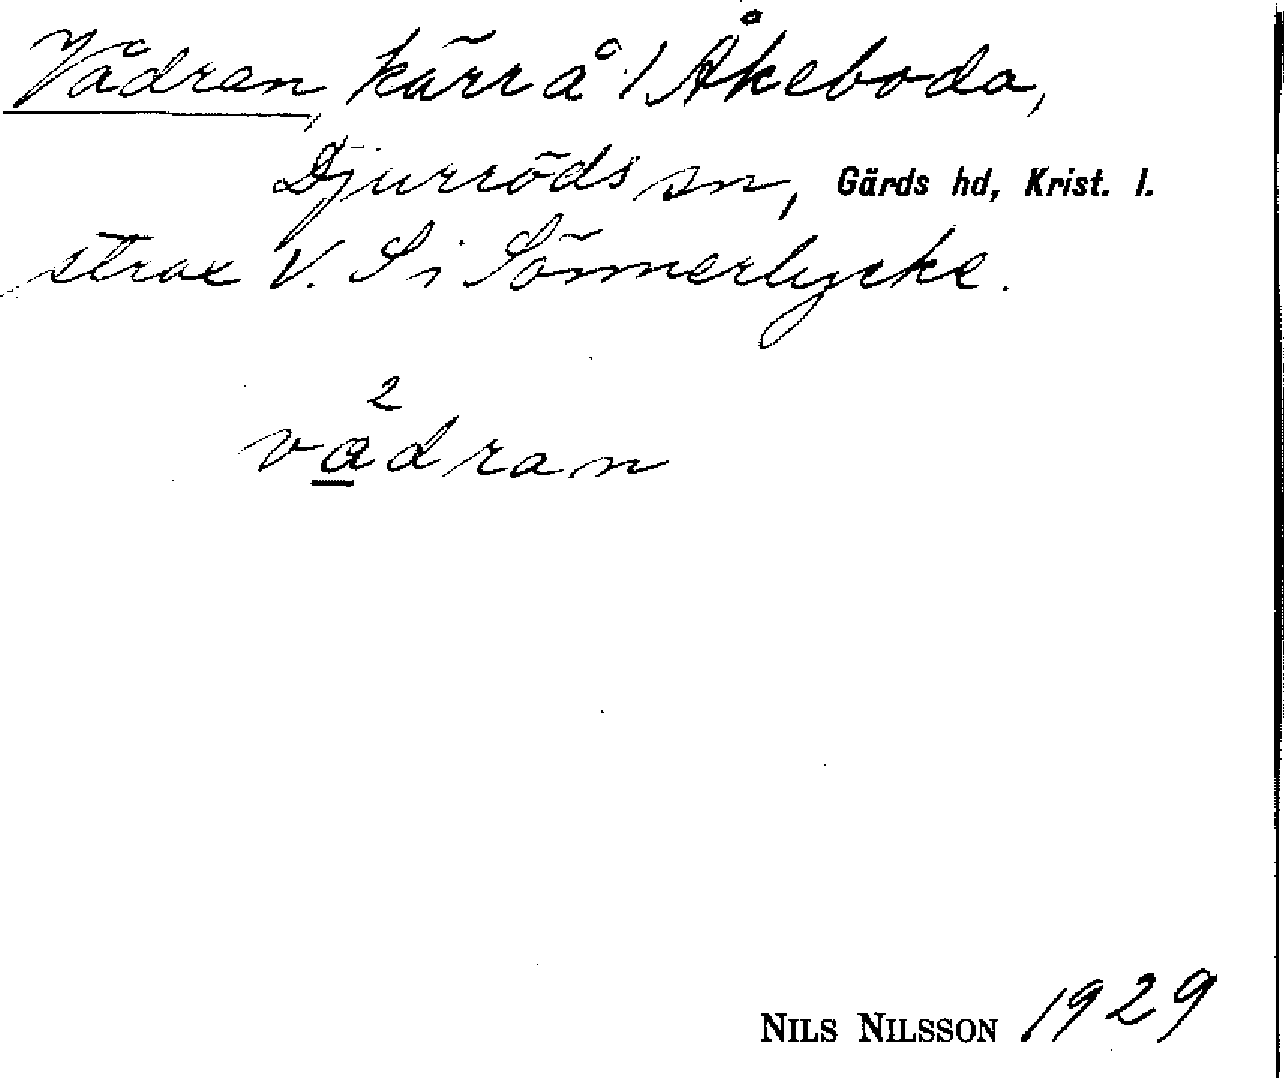 Vådran, kärr å /1 Åkeboda,
Djurröds sn, Gärds hd, Krist. l.
strax V. S i Sönnerlycke.
2
vadran
NILS NILSSON 1929